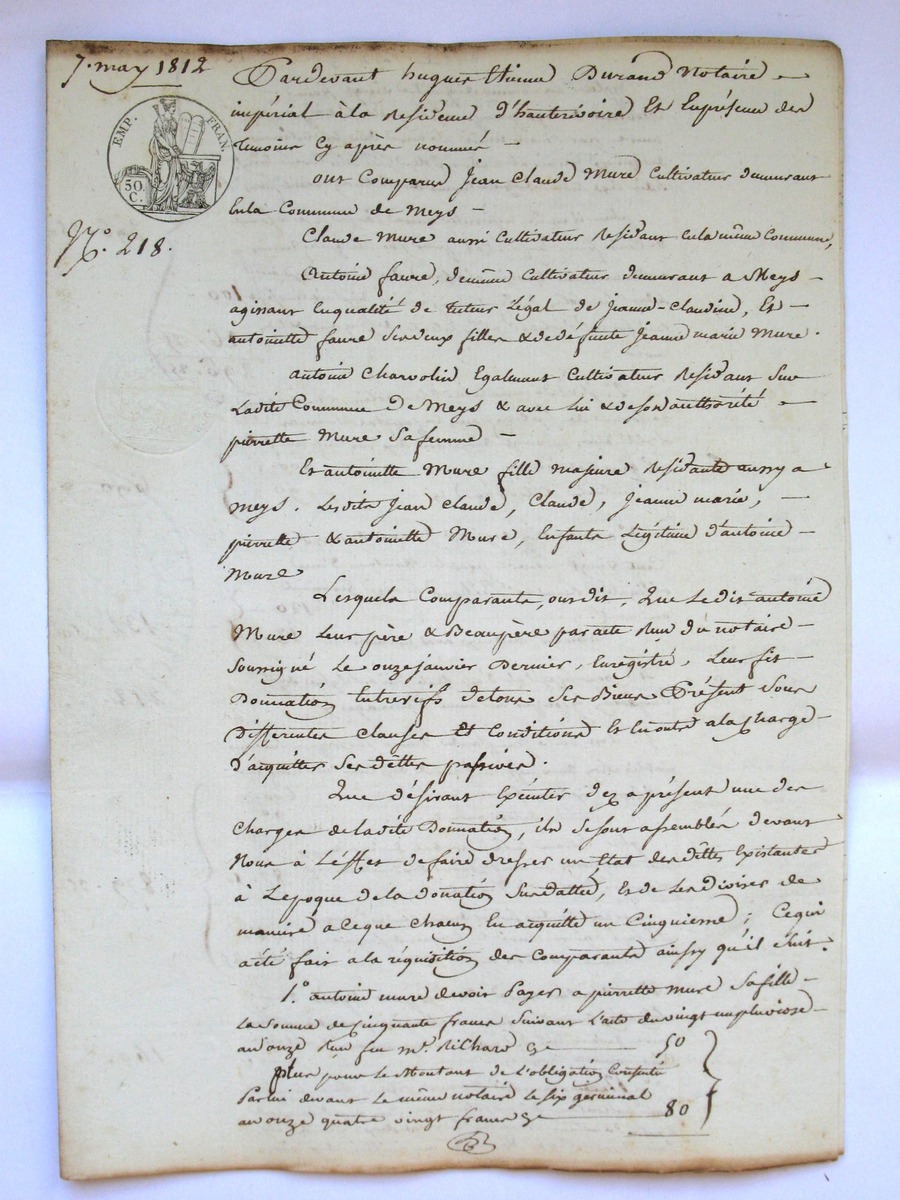 7. may 1812
EMP. FRAN.
50.
C.
N.º 218.
Pardevant hugues Etienne Durand Notaire
impérial à la Residence d'hauterivoire Et Enpresence des
temoins Cy après nommés
ont Comparus Jean Claude Mure Cultivateur demeurant
Enla Commune de Meys
Claude Mure aussi Cultivateur Residant enla même Commune,
Antoine faure, demême Cultivateur demeurant a Meys
agissant Enqualité de tuteur Légal de Jeanne-Claudine, Et
antoinette faure Ses deux filles & de défunte Jeanne marie Mure.
antoine Charvolin Egalement Cultivateur Residant Sur
Ladite Commune de Meys & avec Lui & deson authorité
pierrette Mure Safemme
Et antoinette Mure fille majeure Residante aussy a
Meys. Lesdits Jean Claude, Claude, Jeanne marie,
pierrette & antoinette Mure, Enfants Légitime d'antoine
Mure
Lesquels Comparants, ont dit, Que Ledit antoine
Mure Leur père & Beaupère par acte Reçu du notaire
Soussigné Le onze janvier Dernier, Enregistré, Leur fit
Donnation Entrevifs detous Ses Biens Présent Sous
differentes Clauses Et Conditions Et En outre ala charge
d'acquitter Ses dêttes passives.
Que désirant Exécuter dez a présent une des
Charges deladite Donnation, ils Sesont assemblés devant
Nous à L'éffet defaire dresser un Etat des dêttes Existantes
à Lepoque de la donation Susdattée, et de Les diviser de
maniere aceque chacun En acquitte un Cinquieme; Cequi
a été fait a la réquisition des comparants ainsy qu'il Suit.
1.º antoine mure devoit Payer a pierrette Mure Safille
La Somme de Cinquante francs Suivant L'acte du vingt un pluviose
an onze Reçu feu m.e Richard 50
plus pour le Montant de L'obligation Consentie
Par lui devant Le même notaire le six germinal
an onze quatre vingt francs 80